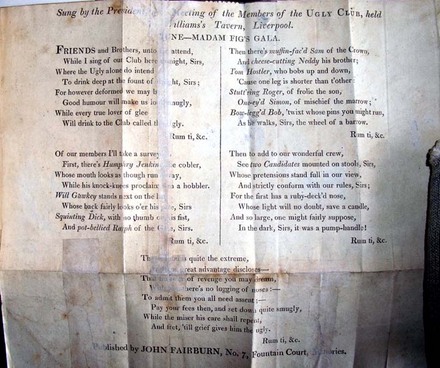 Sung by the President, at Meeting of the Members of the UGLY CLUB, held
Williams's Tavern, Liverpool.
TUNE—MADAM FIG'S GALA.
FRIENDS and Brothers, unto attend,
While I sing of our Club here night, Sirs;
Where the Ugly alone do intend
To drink deep at the fount of ht, Sirs;
For however deformed we may b
Good humour will make us lo ugly,
While every true lover of glee
Will drink to the Club called the gly.
Rum ti, &c.
Of our members I'll take a survey
First, there's Humphry Jenkins the cobler,
Whose mouth looks as though run way,
While his knock-knees proclaim a hobbler.
Will Gawkey stands next on the
Whose back fairly looks o'er his Sirs
Squinting Dick, with no thumb on is fist,
And pot-bellied Ralph of the Sirs.
Rum ti, &c.
Then there's muffin-fac'd Sam of the Crown,
And cheese-cutting Neddy his brother;
Tom Hostler, who bobs up and down,
'Cause one leg is shorter than t'other
Stutt'ring Roger, of frolic the son,
One-ey'd Simon, of mischief the marrow;
Bow-legg'd Bob, 'twixt whose pins you might run,
As he walks, Sirs, the wheel of a barrow.
Rum ti, &c.
Then to add to our wonderful crew,
See two Candidates mounted on stools, Sirs,
Whose pretensions stand full in our view,
And strictly conform with our rules, Sirs;
For the first has a ruby-deck'd nose,
Whose light will no doubt, save a candle,
And so large, one might fairly suppose,
In the dark, Sirs, it was a pump-handle!
Rum ti, &c.
The is quite the extreme,
great advantage discloses—
That of revenge you may dream,
there's no lugging of noses:—
To admit them you all need assent;—
Pay your fees then, and set down quite smugly,
While the miser his care shall repent,
And fret, 'till grief gives him the ugly.
Rum ti, &c.
Published by JOHN FAIRBURN, No. 7, Fountain Court,